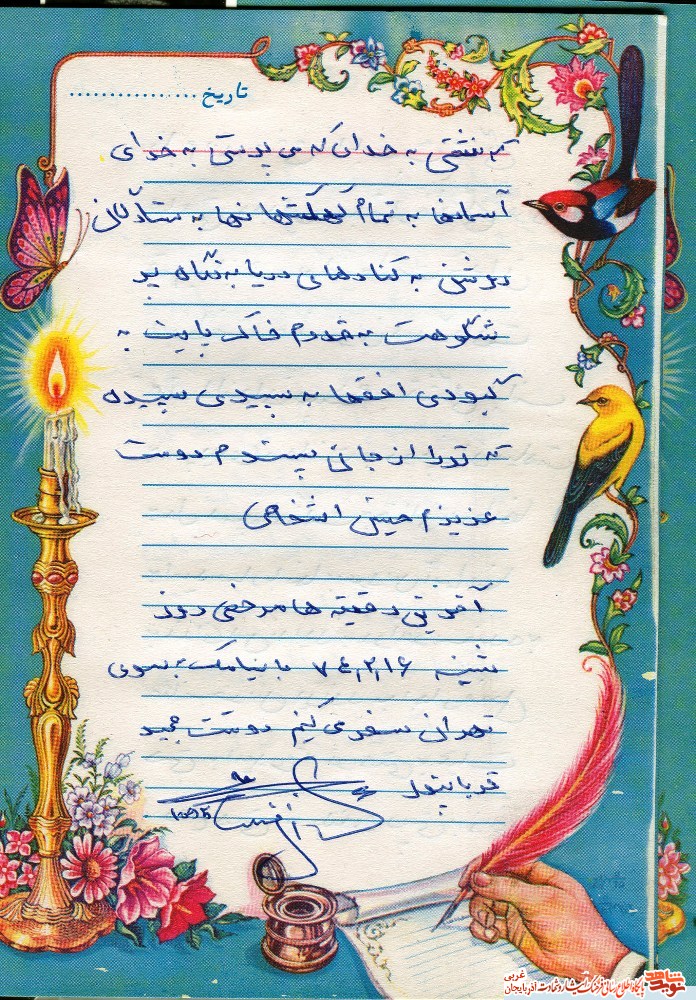 تاریخ ..................
به خدائی که می پرستی به خدای
آسمانها به تمام کهکشانها به ستارگان
روشن به کنارهای دریا به نگاه پر
شکوهت به قدوم خاک پایت به
کبودی افقها به سپیدی سپیده
که تو را از جانی پسندم دوست
عزیزم حبیبی
آخرین دقیقه ها مرخصی روز
شنبه ۷۴,۲,۱۶ با نیامک به سوی
تهران سفر می کنیم دوستت حمید
نوید شاهد
پایگاه اطلاع رسانی فرهنگ ایثار و شهادت آذربایجان غربی